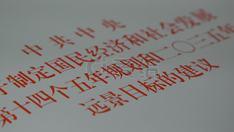 中共中央
制定国民经济和社会发展
第十四个五年规划和二〇三五年
远景目标的建议